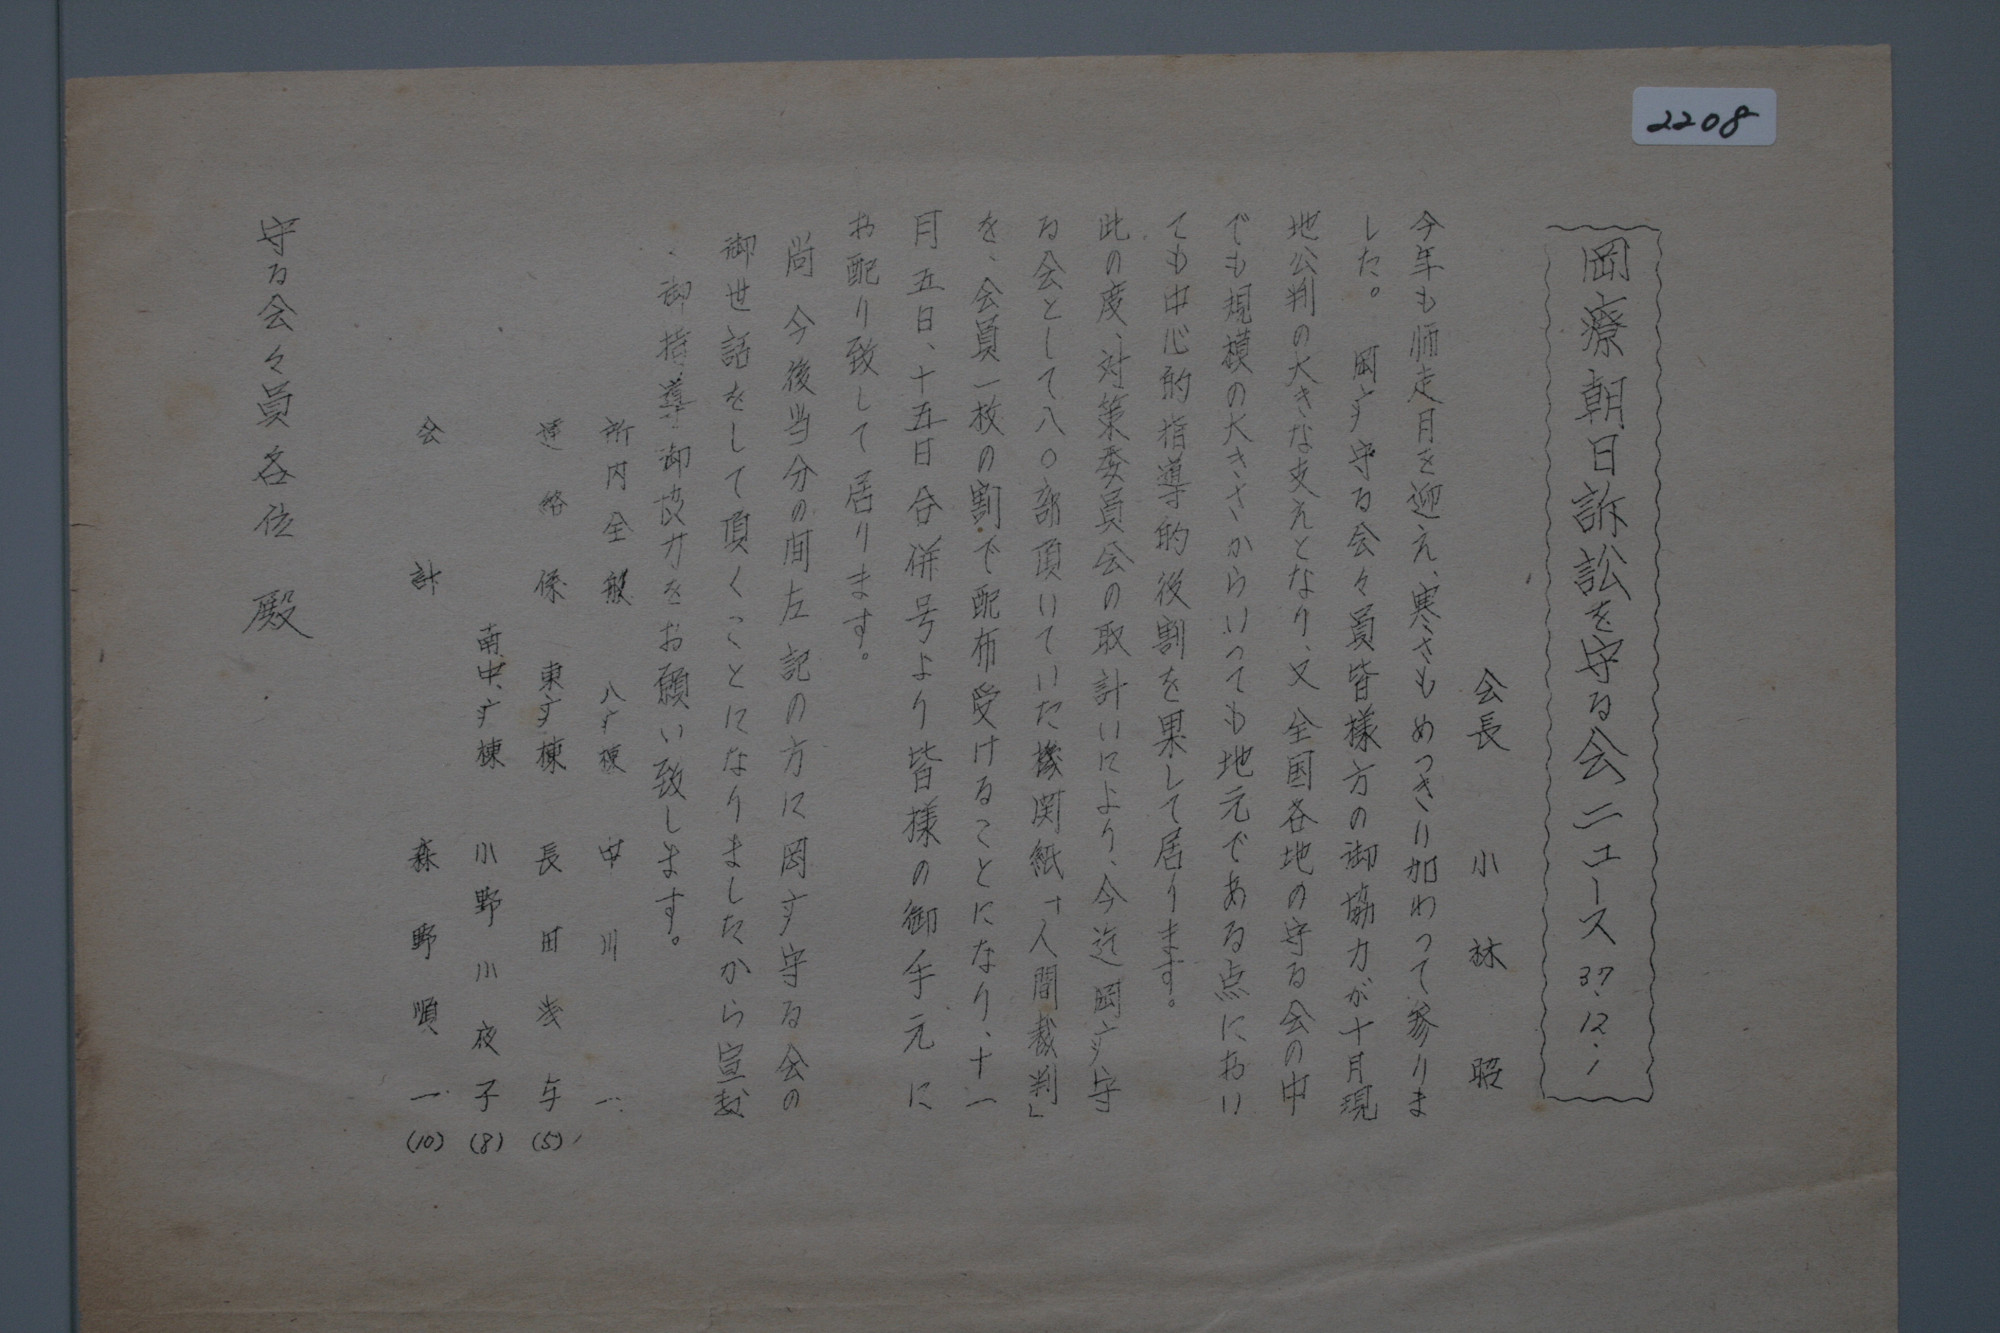 2208
岡療朝日訴訟を守る会ニュース 37.12.1
会長 小林昭
今年も師走月を迎え、寒さもめっきり加わって参りま
した。 岡疒守る会々員皆様方の御協力が十月現
地公判の大きな支えとなり、又全国各地の守る会の中
でも規模の大きさからいっても地元である点におい
ても中心的指導的役割を果して居ります。
此の度、対策委員会の取計いにより、今迄岡疒守
る会として八〇部頂いていた機関紙「人間裁判」
を、会員一枚の割で配布受けることになり、十一
月五日、十五日合併号より皆様の御手元に
お配り致して居ります。
尚 今後当分の間左記の方に岡疒守る会の
御世話をして頂くことになりましたから宣敷
御指導御協力をお願い致します。
所内全般 八疒棟 中川一
連絡係 東疒棟 長田浅与(5)
南中疒棟 小野川夜子(8)
会計 森野順一(10)
守る会々員各位 殿